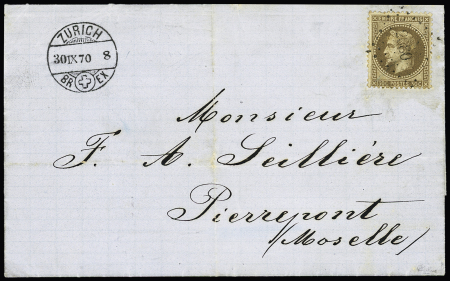 ZURICH
30 IX 70 8
BR EX
Monsieur
F. A. Seillière
Pierrepont
(Moselle)